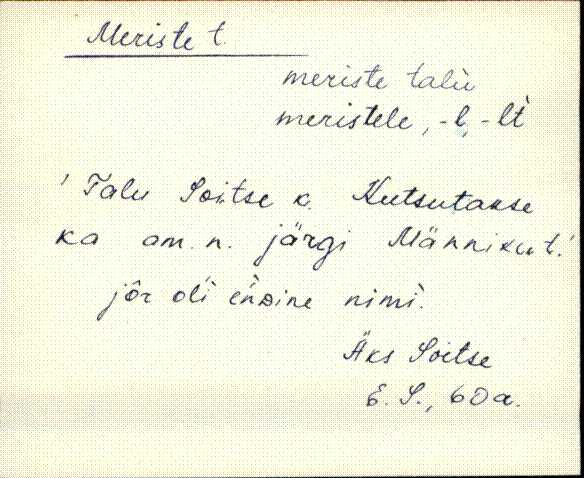 Meriste t.
meriste talu
meristele, -l, -lt
'Talu Soitse k. Kutsutakse
ka am. n. järgi Männiku t.'
jôr oli
nimi.
Äks Soitse
E. S., 60a.